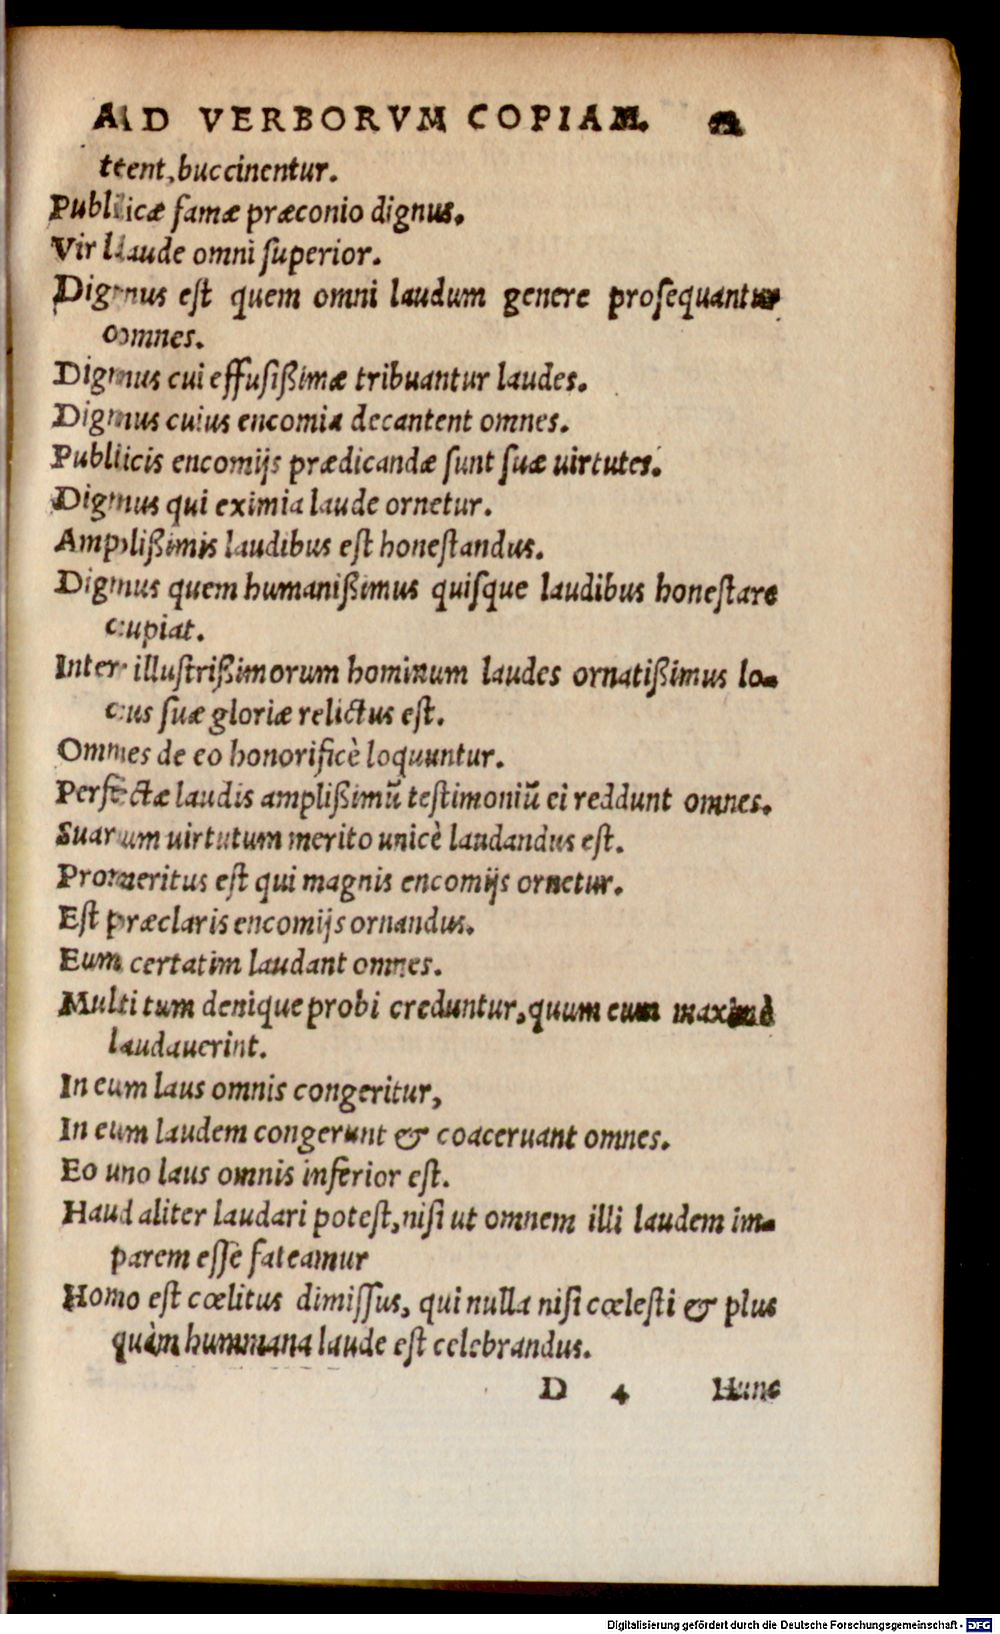 AD VERBORVM COPIAM.
tent, buccinentur.
Publicæ famæ præconio dignus.
Vir laude omni ſuperior.
Dignus eſt quem omni laudum genere proſequantur
omnes.
Dignus cui effuſißimæ tribuantur laudes.
Dignus cuius encomia decantent omnes.
Publicis encomijs prædicandæ ſunt ſuæ uirtutes.
Dignus qui eximia laude ornetur.
Amplißimis laudibus eſt honeſtandus.
Dignus quem humanißimus quiſque laudibus honeſtare
cupiat.
Inter illuſtrißimorum hominum laudes ornatißimus lo-
cus ſuæ gloriæ relictus eſt.
Omnes de eo honorificè loquuntur.
Perfectæ laudis amplißimũ teſtimoniũ ei reddunt omnes.
Suarum uirtutum merito unicè laudandus eſt.
Promeritus eſt qui magnis encomijs ornetur.
Eſt præclaris encomijs ornandus.
Eum certatim laudant omnes.
Multi tum denique probi creduntur, quum eum maximè
laudauerint.
In eum laus omnis congeritur,
In eum laudem congerunt & coaceruant omnes.
Eo uno laus omnis inferior eſt.
Haud aliter laudari poteſt, niſi ut omnem illi laudem im-
parem eſſe fateamur
Homo eſt cœlitus dimiſſus, qui nulla niſi cœleſti & plus
quàm humana laude eſt celebrandus.
D 4 Hunc
Digitalisierung gefördert durch die Deutsche Forschungsgemeinschaft - DFG